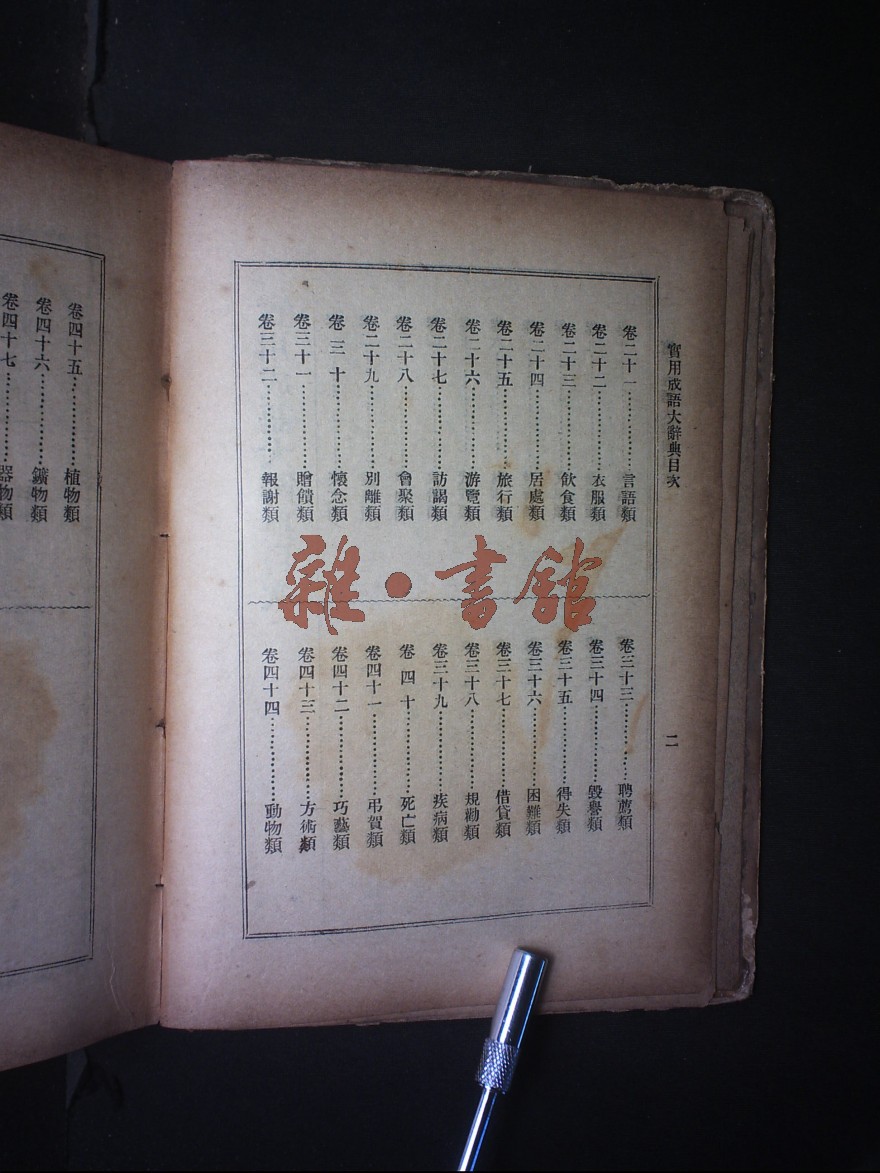 實用成語大辭典目次
二
卷二十一…………言語類
卷二十二…………衣服類
卷二十三…………飲食類
卷二十四…………居處類
卷二十五…………旅行類
卷二十六…………游覽類
卷二十七…………訪謁類
卷二十八…………會聚類
卷二十九…………別離類
卷三十…………懷念類
卷三十一…………贈饋類
卷三十二…………報謝類
卷三十三…………聘薦類
卷三十四…………毀譽類
卷三十五…………得失類
卷三十六…………困難類
卷三十七…………借貸類
卷三十八…………規勸類
卷三十九…………疾病類
卷四十…………死亡類
卷四十一…………弔賀類
卷四十二…………巧藝類
卷四十三…………方術類
卷四十四…………動物類
卷四十五…………植物類
卷四十六…………鑛物類
卷四十七…………器物類
雜·書館